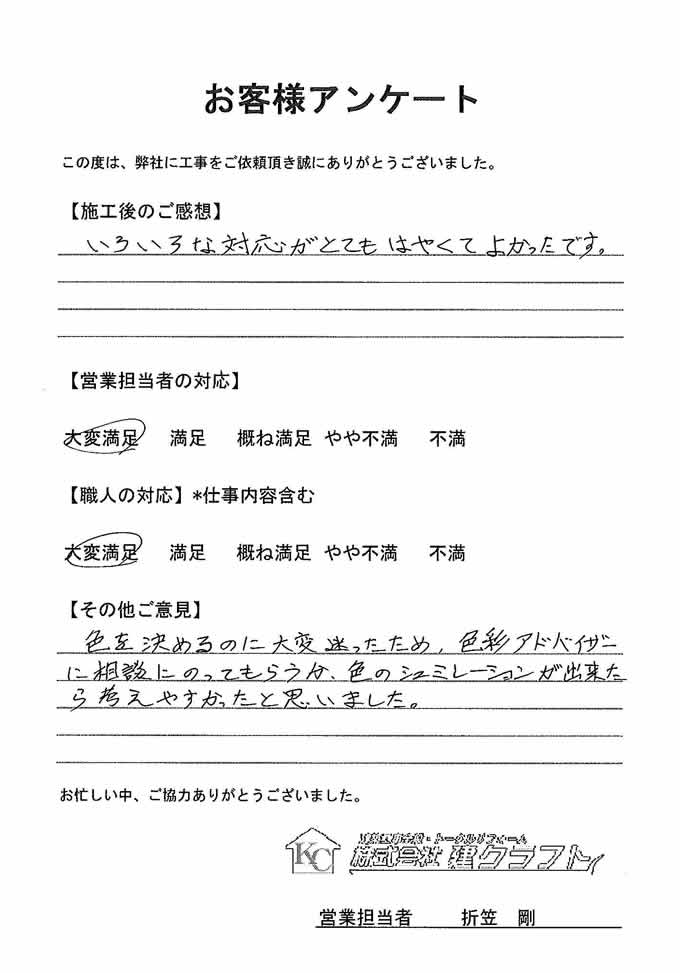 お客様アンケート
この度は、弊社に工事をご依頼頂き誠にありがとうございました。
【施工後のご感想】
いろいろな対応がとてもはやくてよかったです。
【営業担当者の対応】
大変満足 満足 概ね満足 やや不満 不満
【職人の対応】*仕事内容含む
大変満足 満足 概ね満足 やや不満 不満
【その他ご意見】
色を決めるのに大変迷ったため、色彩アドバイザー
に相談にのってもらうか、色のシュミレーションが出来た
ら考えやすかったと思いました。
お忙しい中、ご協力ありがとうございました。
KC
株式会社 建クラフト
営業担当者 折笠 剛